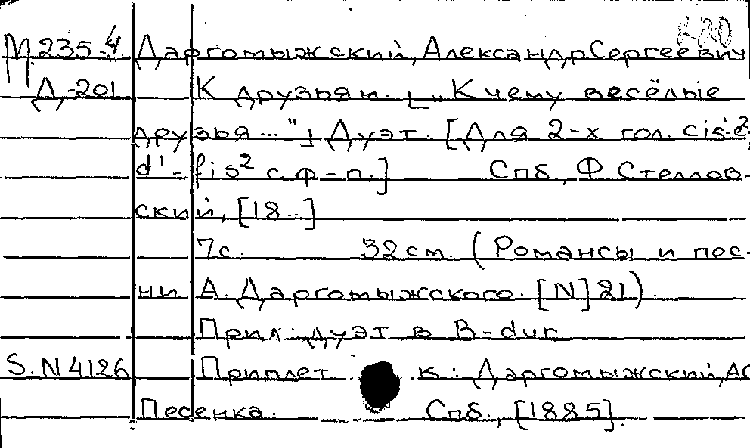 М 235-4 Даргомыжский, Александр Сергеевич
Д-201 К друзьям. [„К чему весёлые
друзья..."] Дуэт. [Для 2-х гол. cis'-e²,
d'-fis² с ф-п.] Спб, Ф Стеллов-
ский, [18..]
7с. 32см (Романсы и пес-
ни А. Даргомыжского. [N] 21)
Прил: дуэт в B-dur
S.N 4126 Приплет к: Даргомыжский, АС
Песенка. Спб., [1885].